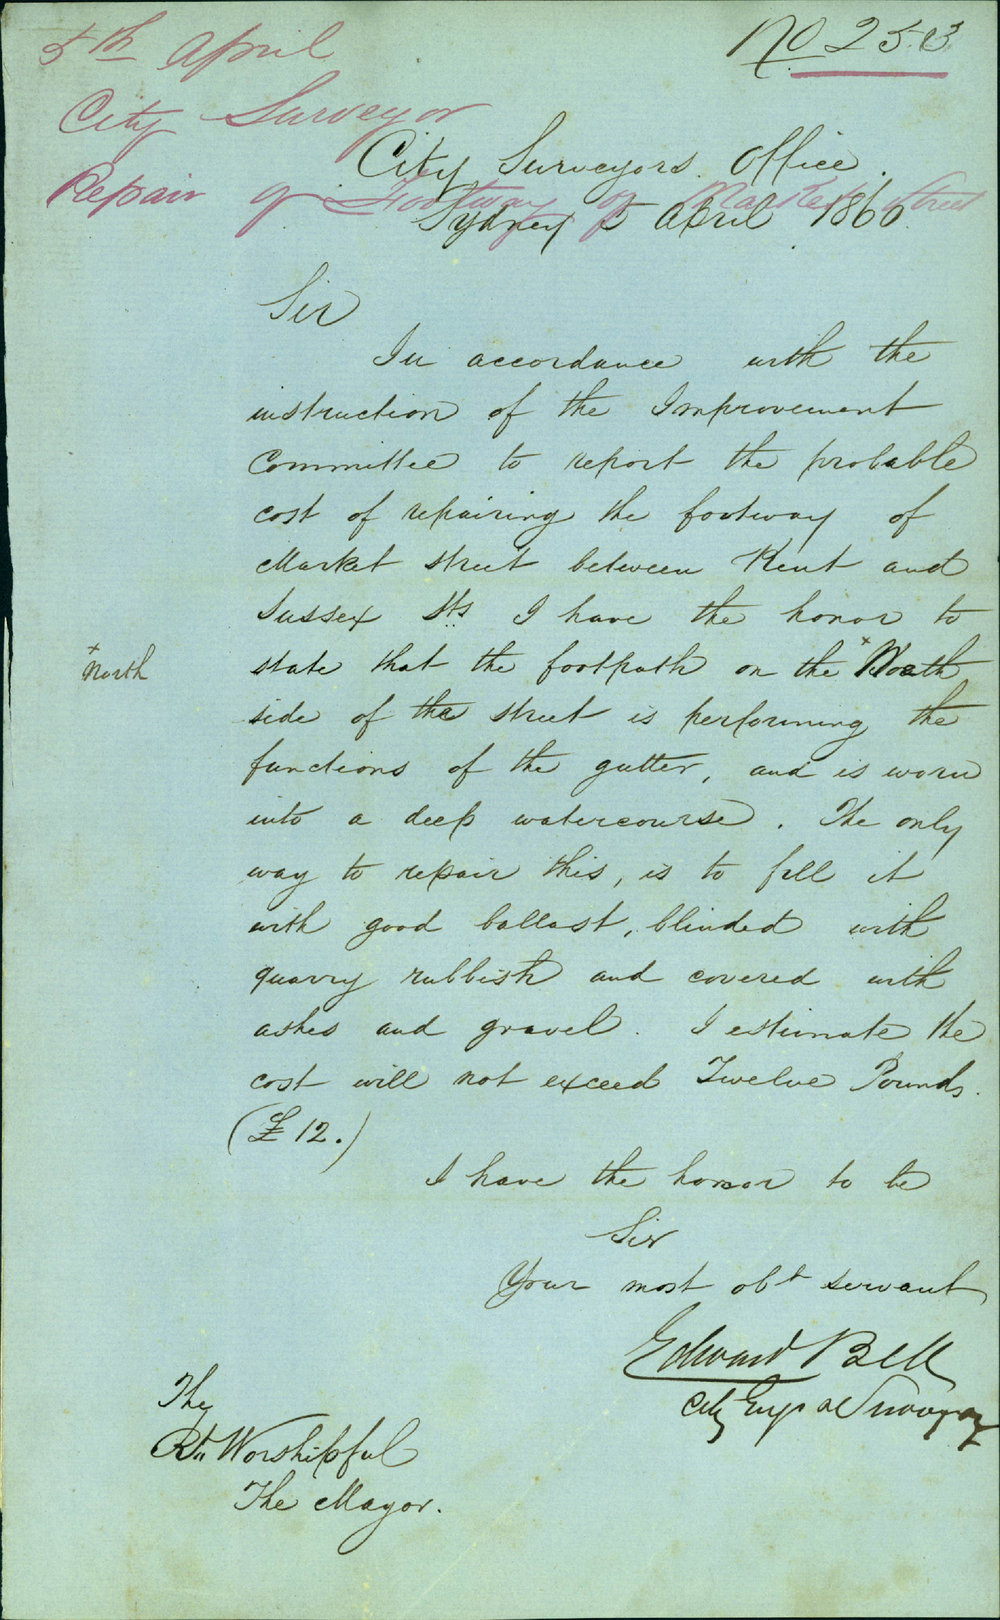 5th April
No 253
City Surveyor
City Surveyors Office
Repair of Footway of Market Street
Sydney 5 April 1860
Sir
In accordance with the
instruction of the Improvement
Committee to report the probable
cost of repairing the footway of
Market street between Kent and
Sussex Sts I have the honor to
state that the footpath on the × North
× North
side of the street is performing the
functions of the gutter, and is worn
into a deep watercourse. The only
way to repair this, is to fill it
with good ballast, blinded with
quarry rubbish and covered with
ashes and gravel. I estimate the
cost will not exceed Twelve Pounds.
(£12.)
I have the honor to be
Sir
Your most obt servant
Edward Bell
City Engr & Surveyor
The
Rt Worshipful
The Mayor.